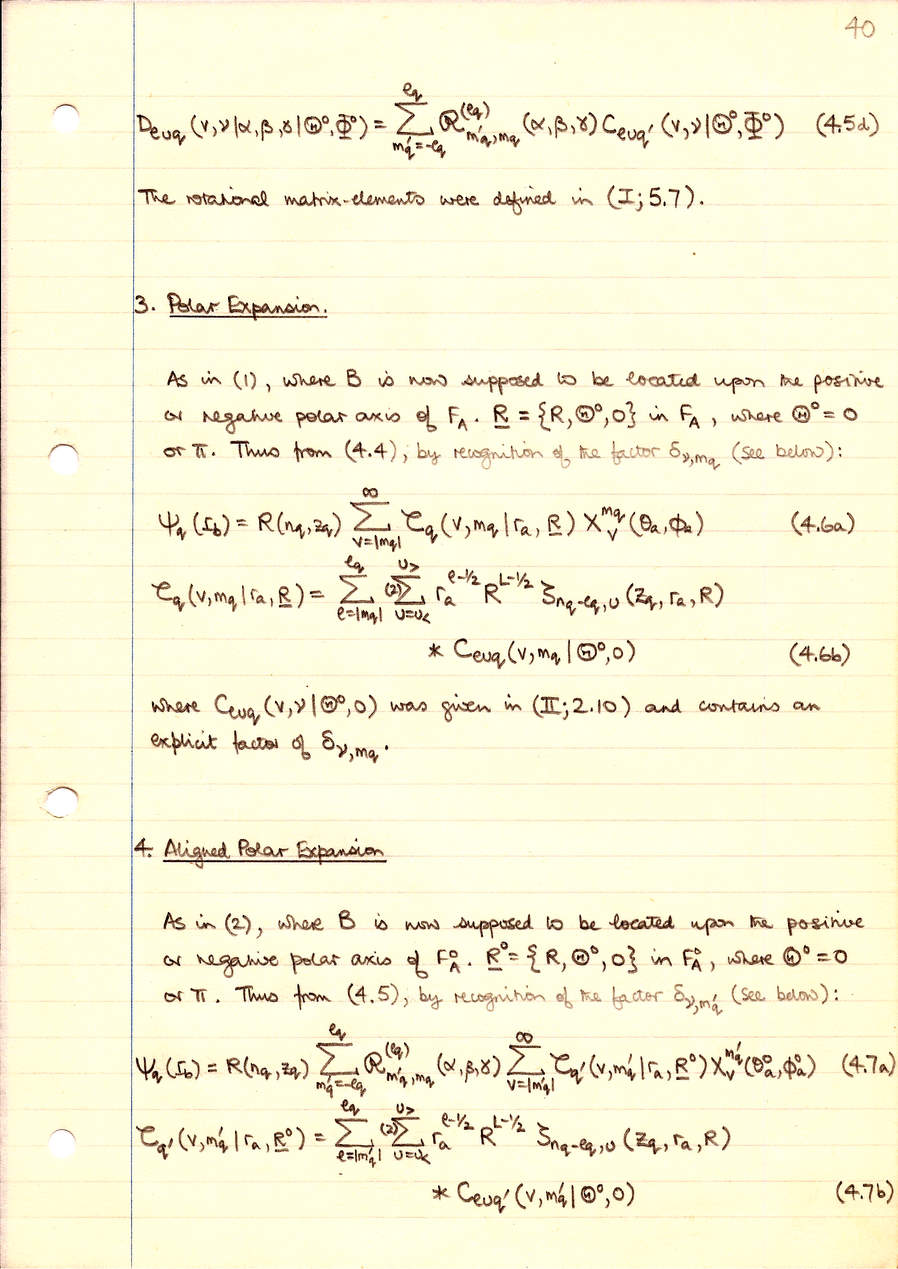 40
D_{ℓυq}(v,ν|α,β,γ|Θ°,Φ°) = Σ_{m'_q=-ℓ_q}^{ℓ_q} R^{(ℓ_q)}_{m'_q,m_q}(α,β,γ) C_{ℓυq'}(v,ν|Θ°,Φ°) (4.5d)
The rotational matrix-elements were defined in (I; 5.7).
3. Polar Expansion.
As in (1), where B is now supposed to be located upon the positive
or negative polar axis of F_A. R = {R,Θ°,0} in F_A, where Θ° = 0
or π. Thus from (4.4), by recognition of the factor δ_{ν,m_q} (see below):
Ψ_q(r_b) = R(n_q,z_q) Σ_{v=|m_q|}^{∞} τ_q(v,m_q|r_a,R) X_v^{m_q}(θ_a,φ_a) (4.6a)
τ_q(v,m_q|r_a,R) = Σ_{ℓ=|m_q|}^{ℓ_q} (2)Σ_{υ=υ<}^{υ>} r_a^{ℓ-1/2} R^{L-1/2} ζ_{n_q-ℓ_q,υ}(z_q,r_a,R)
* C_{ℓυq}(v,m_q|Θ°,0) (4.6b)
where C_{ℓυq}(v,ν|Θ°,0) was given in (II; 2.10) and contains an
explicit factor of δ_{ν,m_q}.
4. Aligned Polar Expansion
As in (2), where B is now supposed to be located upon the positive
or negative polar axis of F°_A. R° = {R,Θ°,0} in F°_A, where Θ° = 0
or π. Thus from (4.5), by recognition of the factor δ_{ν,m'_q} (see below):
Ψ_q(r_b) = R(n_q,z_q) Σ_{m'_q=-ℓ_q}^{ℓ_q} R^{(ℓ_q)}_{m'_q,m_q}(α,β,γ) Σ_{v=|m'_q|}^{∞} τ_{q'}(v,m'_q|r_a,R°) X_v^{m'_q}(θ°_a,φ°_a) (4.7a)
τ_{q'}(v,m'_q|r_a,R°) = Σ_{ℓ=|m'_q|}^{ℓ_q} (2)Σ_{υ=υ<}^{υ>} r_a^{ℓ-1/2} R^{L-1/2} ζ_{n_q-ℓ_q,υ}(z_q,r_a,R)
* C_{ℓυq'}(v,m'_q|Θ°,0) (4.7b)